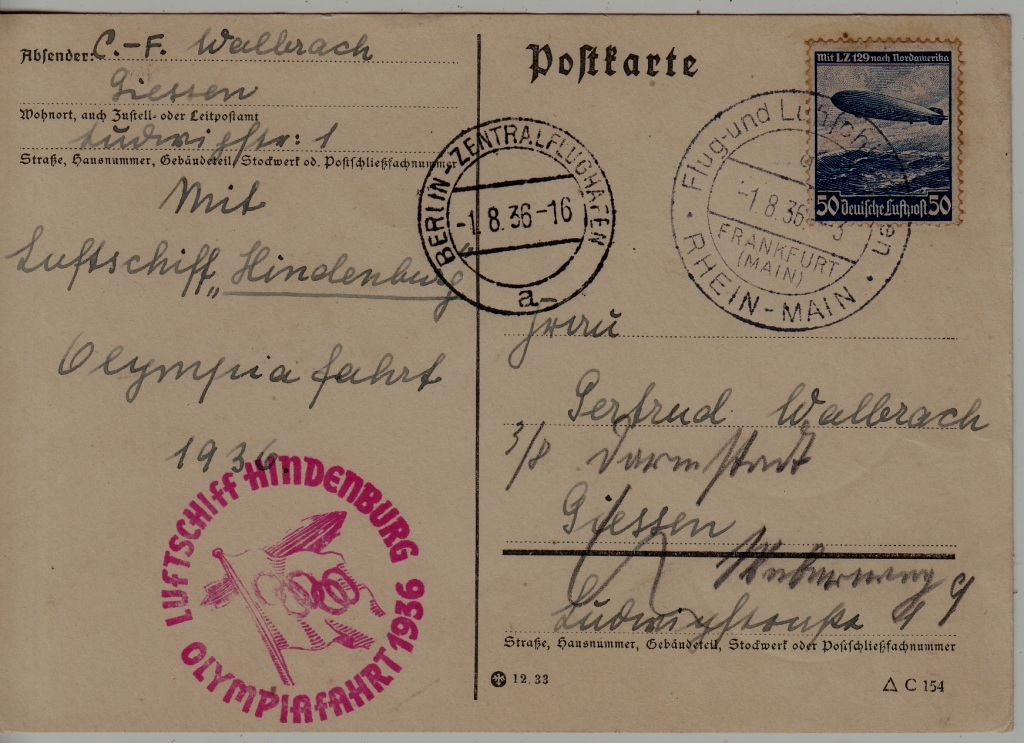 Absender: C.-F. Walbrach
Giessen
Wohnort, auch Zustell- oder Leitpostamt
Ludwigstr: 1
Straße, Hausnummer, Gebäudeteil, Stockwerk od. Postschließfachnummer
Mit
Luftschiff „Hindenburg“
Olympiafahrt
1936.
LUFTSCHIFF HINDENBURG
OLYMPIAFAHRT 1936
Postkarte
Mit LZ 129 nach Nordamerika
50 Deutsche Luftpost 50
BERLIN-ZENTRALFLUGHAFEN
-1.8.36-16
a-
Flug- und Luftschiffhafen
-1.8.36.-3
FRANKFURT
(MAIN)
RHEIN-MAIN
Frau
Gertrud Walbrach
3/8 Darmstadt
Giessen
Weberweg 9
Ludwigstraße 1
Straße, Hausnummer, Gebäudeteil, Stockwerk oder Postschließfachnummer
12. 33
C 154